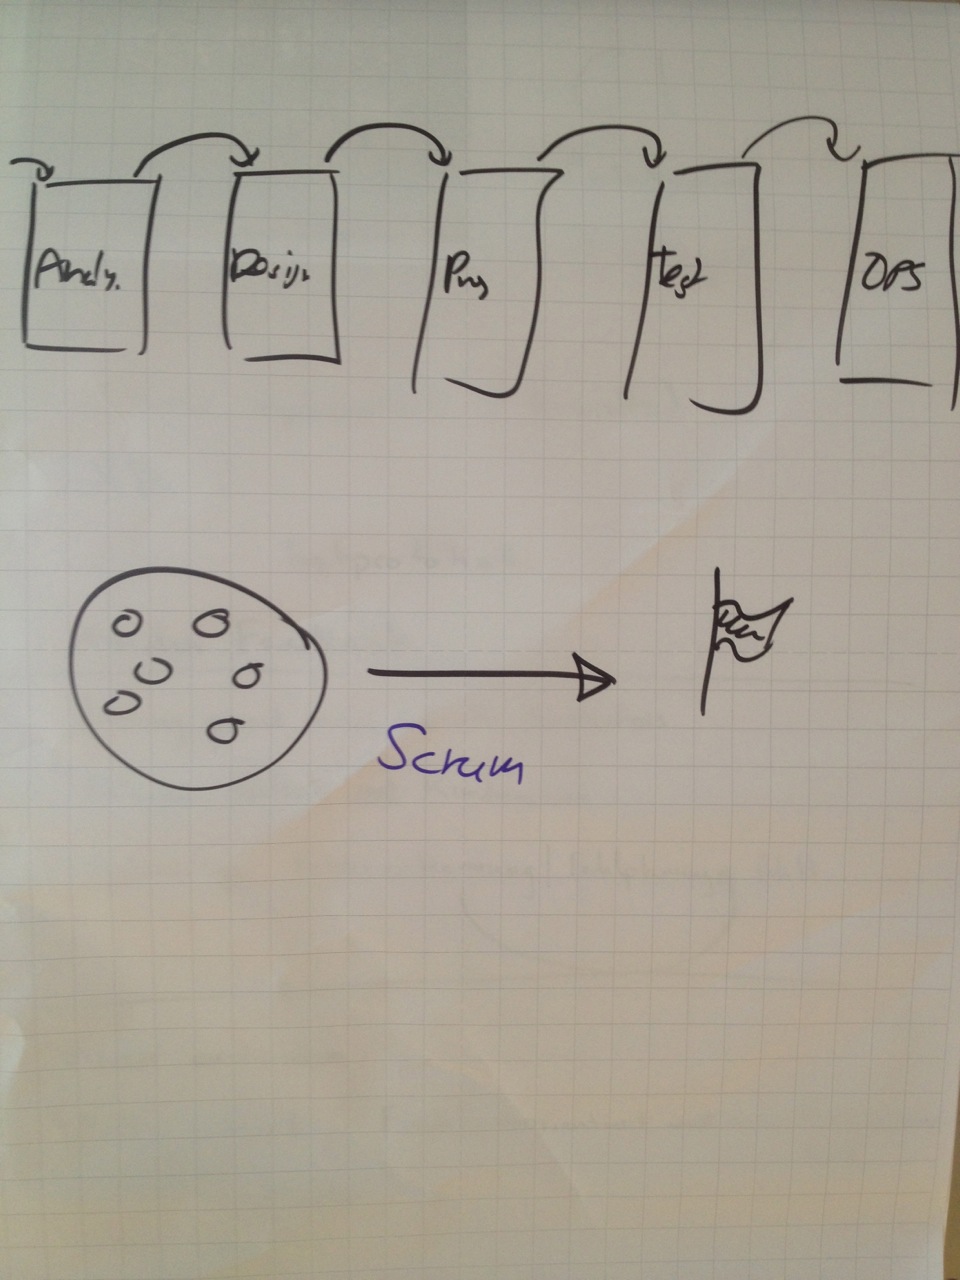 Analy.
Design
Prog
test
OPS
Scrum